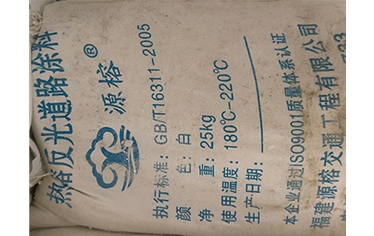 热熔反光道路涂料
源榕®
执行标准：GB/T16311-2005
颜　色：白
净　重：25kg
使用温度：180℃-220℃
生产日期：
本企业通过ISO9001质量体系认证
福建源榕交通工程有限公司